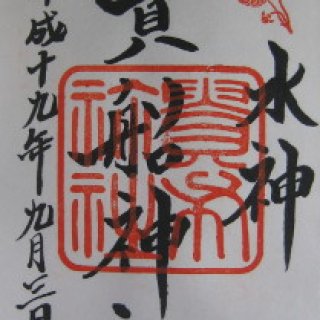 水神
貴船神
平成十九年九月二日
貴船神社